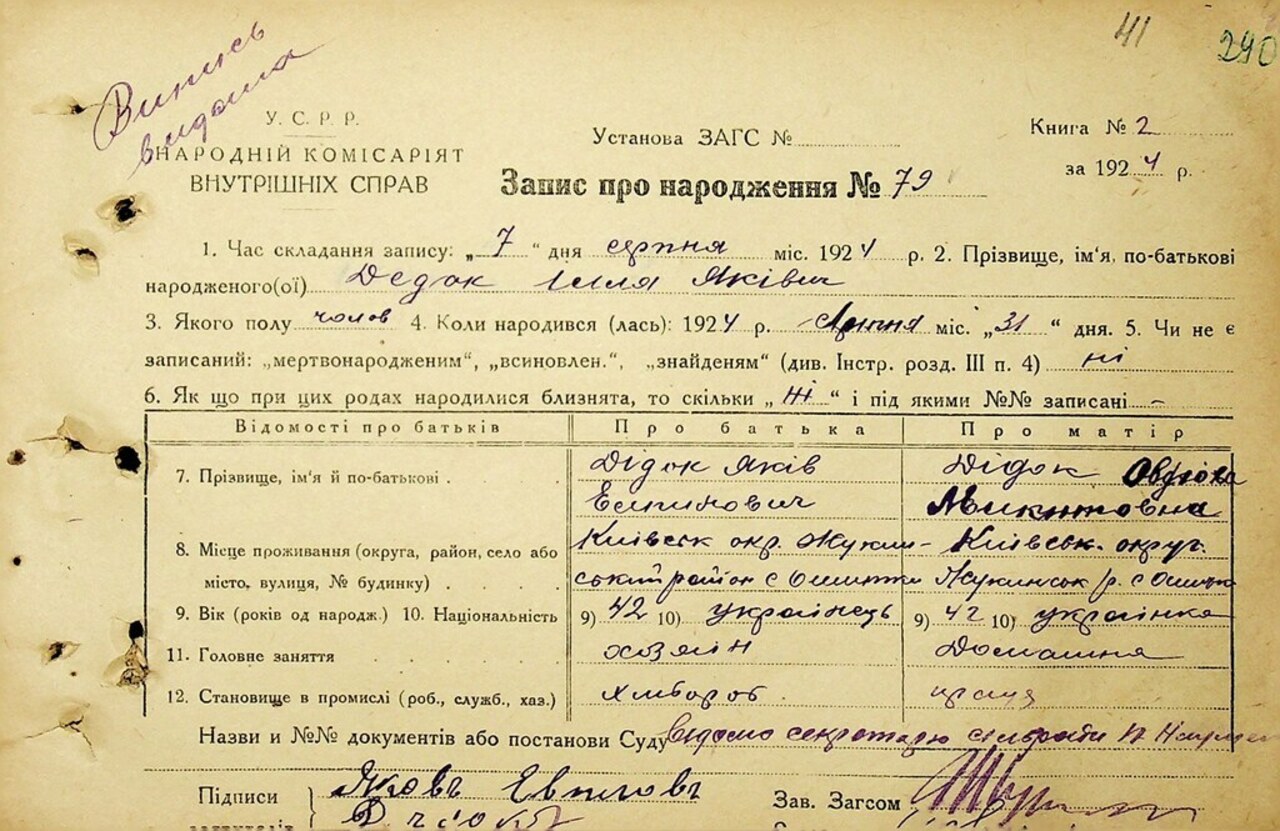 41
290
Випись
видана
У. С. Р. Р.
НАРОДНІЙ КОМІСАРІЯТ
ВНУТРІШНІХ СПРАВ
Установа ЗАГС №
Книга № 2
за 1924 р.
Запис про народження № 79
1. Час складання запису: „7“ дня серпня міс. 1924 р. 2. Прізвище, ім'я, по-батькові
народженого(ої) Дедок Ілля Яківич
3. Якого полу чолов 4. Коли народився (лась): 1924 р. Липня міс. „31“ дня. 5. Чи не є
записаний: „мертвонародженим“, „всиновлен.“, „знайденям“ (див. Інстр. розд. III п. 4) ні
6. Як що при цих родах народилися близнята, то скільки „Ні“ і під якими №№ записані —
Відомості про батьків Про батька Про матір
7. Прізвище, ім'я й по-батькові Дідок Яків Дідок
Микитовна
8. Місце проживання (округа, район, село або Київськ окр. Київськ. округ.
місто, вулиця, № будинку) ський район с
9. Вік (років од народж.) 10. Національність 9) 42 10) українець 9) 42 10) українка
11. Головне заняття хозяін Домашня
12. Становище в промислі (роб., служб., хаз.) хлибороб праця
Назви и №№ документів або постанови Суду секретарю
Підписи Яковъ
Зав. Загсом